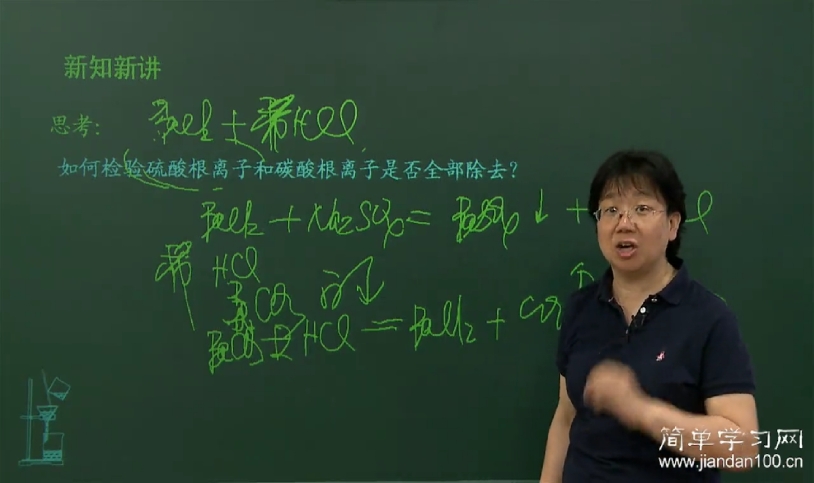 新知新讲
BaCl2 + 稀HCl
思考:
如何检验硫酸根离子和碳酸根离子是否全部除去?
BaCl2 + Na2SO4 = BaSO4↓ +
稀 HCl
BaCO3 + 2HCl = BaCl2 + CO2↑
简单学习网
www.jiandan100.cn